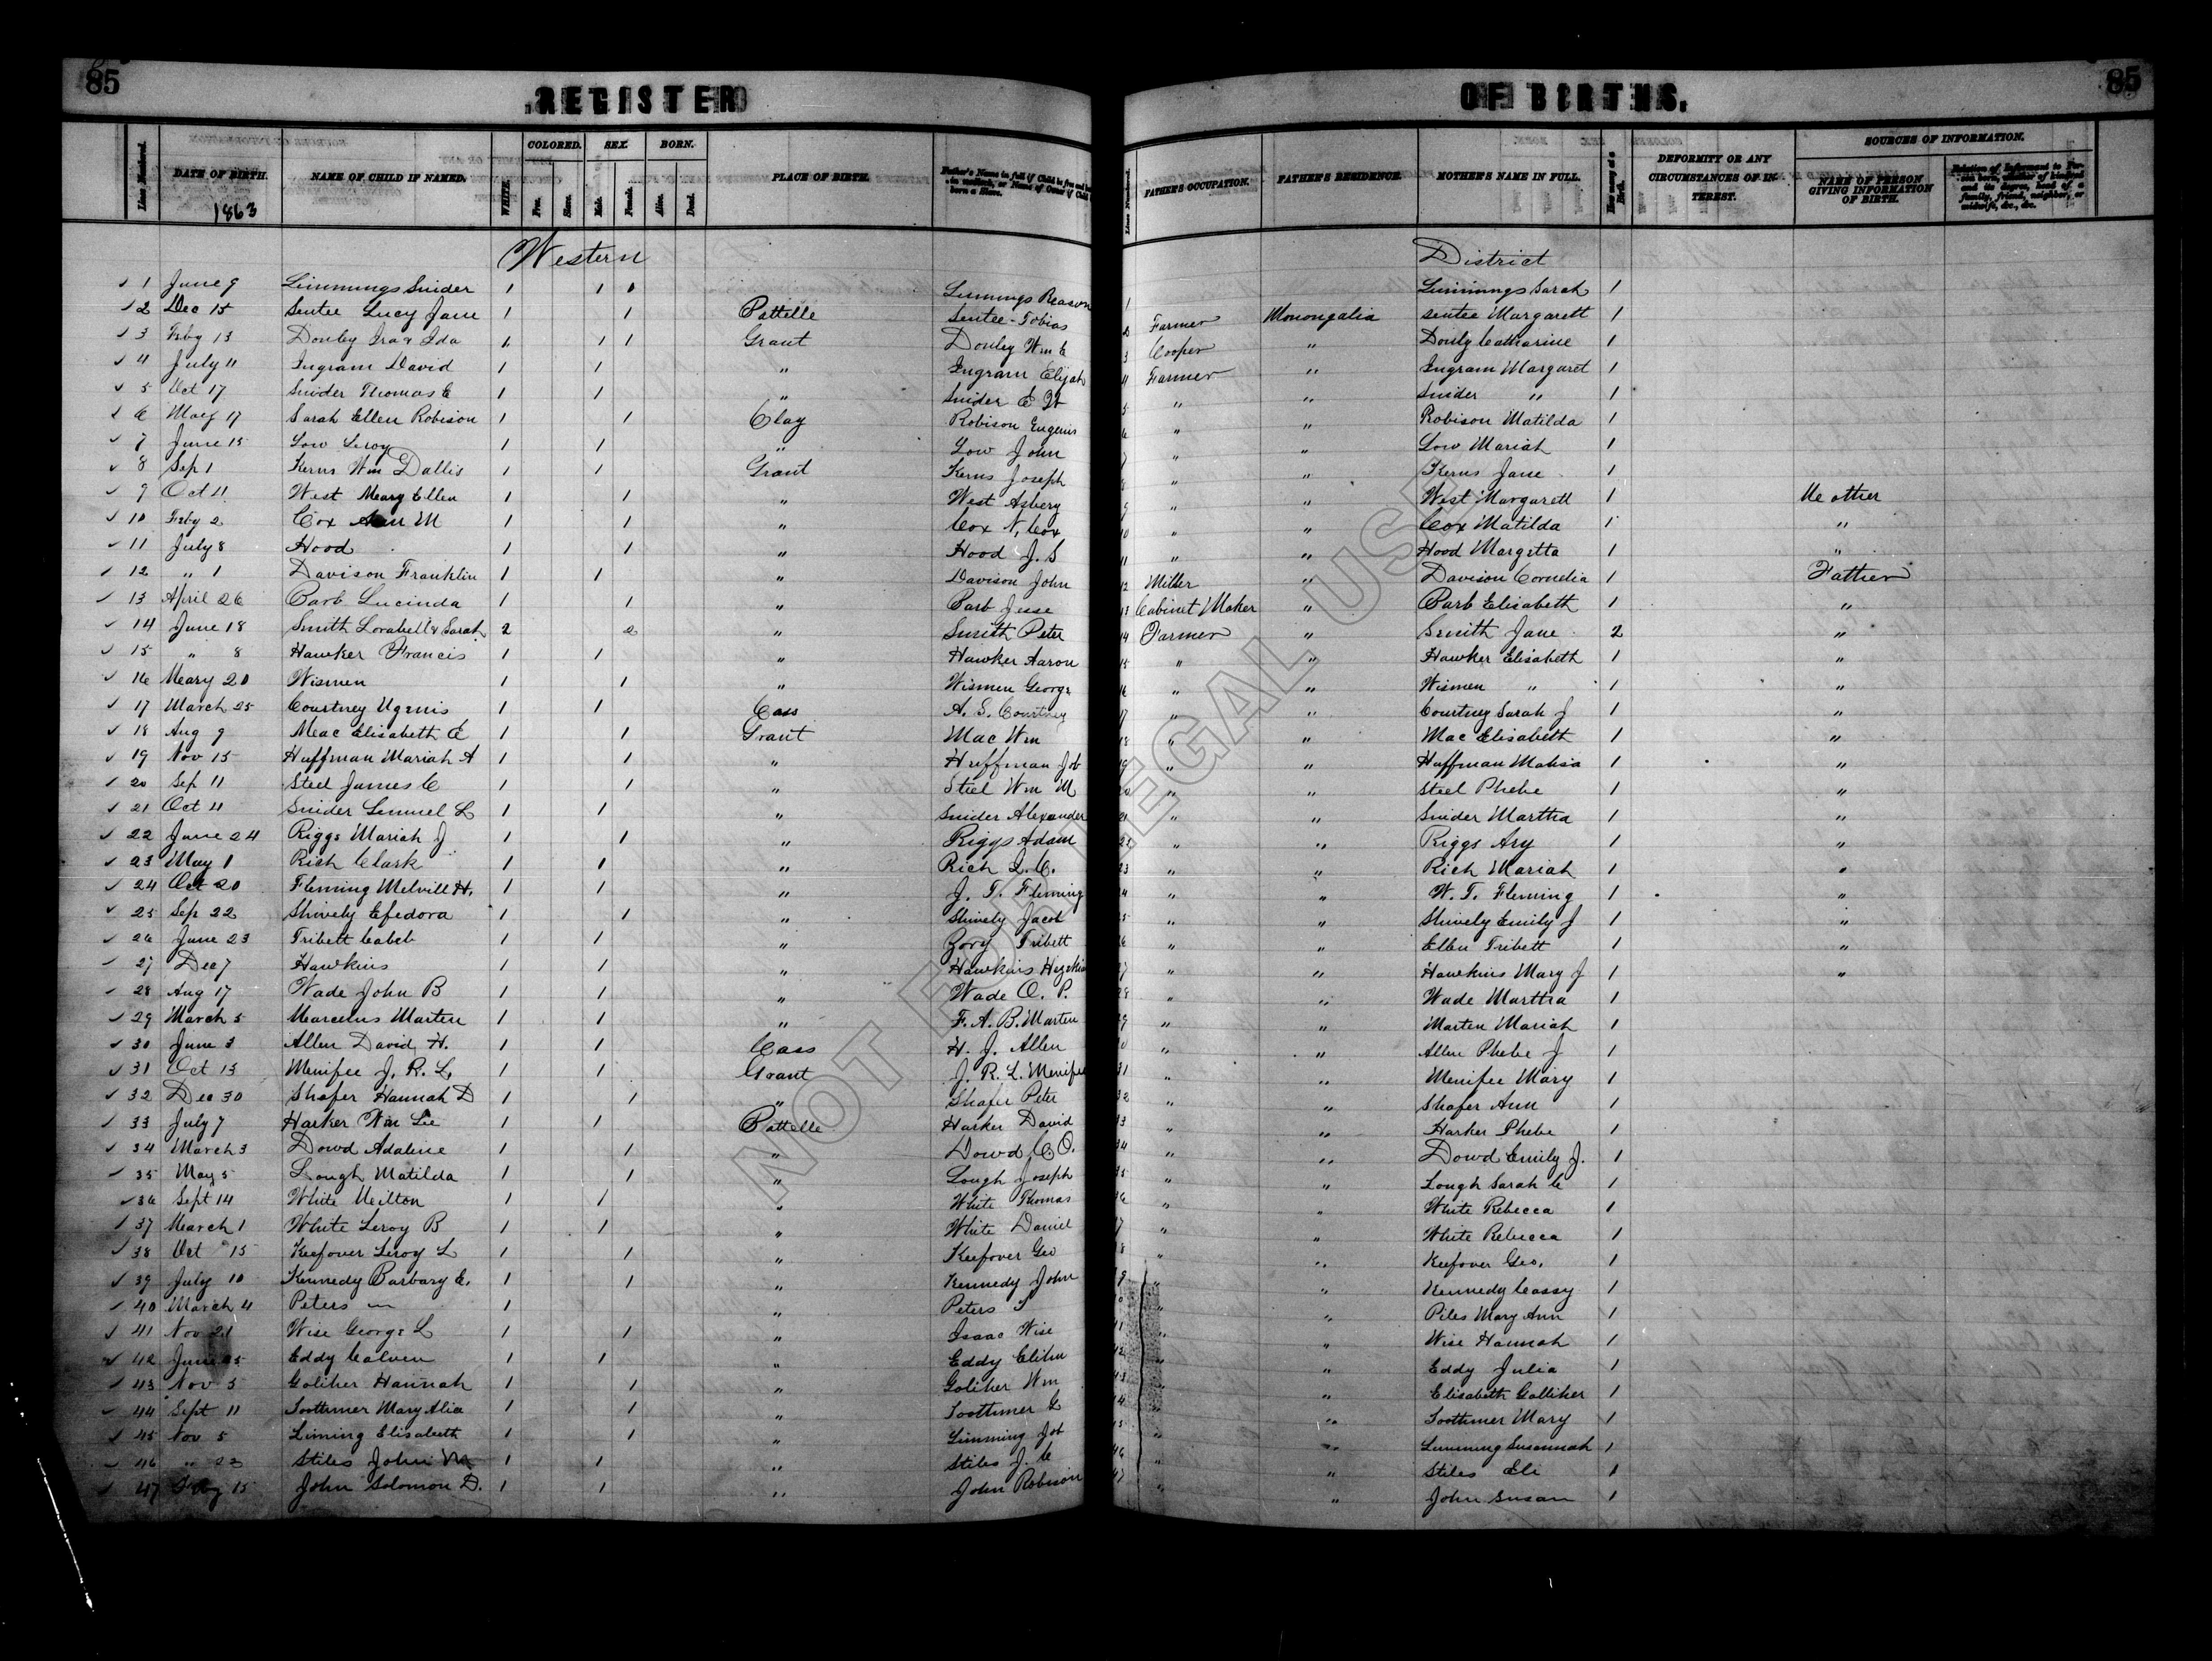 85 REGISTER OF BIRTHS. 85
Lines Numbered. DATE OF BIRTH. 1863 NAME OF CHILD IF NAMED. WHITE. COLORED. Free. Slave. SEX. Male. Female. BORN. Alive. Dead. PLACE OF BIRTH. Father's Name in full if Child be free and born in wedlock, or Name of Owner if Child born a Slave. Lines Numbered. FATHER'S OCCUPATION. FATHER'S RESIDENCE. MOTHER'S NAME IN FULL. How many at a Birth. DEFORMITY OR ANY CIRCUMSTANCES OF INTEREST. SOURCES OF INFORMATION. NAME OF PERSON GIVING INFORMATION OF BIRTH. Relation of Informant to Person born, whether of kindred and its degree, head of a family, friend, neighbor, or midwife, &c., &c.
Western District
1 June 9 Limmings Snider 1 1 1 Limmings Reason 1 Limmings Sarah 1
2 Dec 15 Sentee Lucy Jane 1 1 Battelle Sentee Tobias 2 Farmer Monongalia Sentee Margarett 1
3 Feby 13 Donley Ira & Ida 1 1 1 Grant Donley Wm E 3 Cooper " Donly Catharine 1
4 July 11 Ingram David 1 1 " Ingram Elijah 4 Farmer " Ingram Margaret 1
5 Oct 17 Snider Thomas E 1 1 " Snider E 5 " " Snider " 1
6 May 17 Sarah Ellen Robison 1 1 Clay Robison Eugenis 6 " " Robison Matilda 1
7 June 15 Low Leroy 1 1 " Low John " " Low Mariah 1
8 Sep 1 Kerns Wm Dallis 1 1 Grant Kerns Joseph 8 " " Kerns Jane 1
9 Oct 11 West Mary Ellen 1 1 " West Asbery 9 " " West Margarett 1 Mother
10 Feby 2 Cox Ann M 1 1 " Cox N, Cox 10 " " Cox Matilda 1 "
11 July 8 Hood 1 1 " Hood J. S 11 " " Hood Margetta 1 "
12 " 1 Davison Franklin 1 1 " Davison John 12 Miller " Davison Cornelia 1 Father
13 April 26 Barb Lucinda 1 1 " Barb Jesse 13 Cabinet Maker " Barb Elisabeth 1 "
14 June 18 Smith Lorabell & Sarah 2 2 " Smith Peter 14 Farmer " Smith Jane 2 "
15 " 8 Hawker Francis 1 1 " Hawker Aaron 15 " " Hawker Elisabeth 1 "
16 Mary 20 Wismen 1 1 " Wismen George 16 " " Wismen " 1 "
17 March 25 Courtney Ugenis 1 1 Cass A. S. Courtney 17 " " Courtney Sarah J 1 "
18 Aug 9 Mac Elisabeth E 1 1 Grant Mac Wm 18 " " Mac Elisabeth 1 "
19 Nov 15 Huffman Mariah A 1 1 " Huffman Job 19 " " Huffman Malisa 1 "
20 Sep 11 Steel James C 1 1 " Steel Wm M 20 " " Steel Phebe 1 "
21 Oct 11 Snider Lemuel L 1 1 " Snider Alexander 21 " " Snider Marttha 1 "
22 June 24 Riggs Mariah J 1 1 " Riggs Adam 22 " " Riggs Ary 1 "
23 May 1 Rich Clark 1 1 " Rich L. C. 23 " " Rich Mariah 1 "
24 Oct 20 Fleming Melvill H. 1 1 " J. T. Fleming 4 " " W. T. Fleming 1 "
25 Sep 22 Shively Efedora 1 1 " Shively Jacob 5 " " Shively Emily J 1 "
26 June 23 Tribett Caleb 1 1 " Tribett 6 " " Ellen Tribett 1 "
27 Dec 7 Hawkins 1 1 " Hawkins Hezekiah 7 " " Hawkins Mary J 1 "
28 Aug 17 Wade John B 1 1 " Wade O. P. 28 " " Wade Marttha 1
29 March 5 Marcelus Marten 1 1 " F. A. B. Marten 29 " " Marten Mariah 1
30 June 3 Allen David H. 1 1 Cass H. J. Allen 0 " " Allen Phebe J 1
31 Oct 15 Menifee J. R. L. 1 1 Grant J. R. L. Menifee 31 " " Menifee Mary 1
32 Dec 30 Shafer Hannah D 1 1 " Shafer Peter 32 " " Shafer Ann 1
33 July 7 Harker Wm Lee 1 1 Battelle Harker David 13 " " Harker Phebe 1
34 March 3 Dowd Adaline 1 1 " Dowd C O. 34 " " Dowd Emily J. 1
35 May 5 Lough Matilda 1 1 " Lough Joseph 35 " " Lough Sarah C 1
36 Sept 14 White Milton 1 1 " White Thomas 6 " " White Rebecca 1
37 March 1 White Leroy B 1 1 " White Daniel 7 " " White Rebecca 1
38 Oct 15 Keefover Leroy L 1 1 " Keefover Geo 8 " " Keefover Geo. 1
39 July 10 Kennedy Barbary E. 1 1 " Kennedy John 9 " " Kennedy Cassy 1
40 March 4 Peters 1 " Peters 0 " " Piles Mary Ann 1
41 Nov 21 Wise George L 1 1 " Isaac Wise " " Wise Hannah 1
42 June 25 Eddy Calven 1 1 " Eddy Elihu " " Eddy Julia 1
43 Nov 5 Goliher Hannah 1 1 " Goliher Wm " " Elisabeth Galliher 1
44 Sept 11 Toothmer Mary Alia 1 1 " Toothmer G " " Toothmer Mary 1
45 Nov 5 Liming Elisabeth 1 1 " Limming Job " " Limming Susannah 1
46 " 23 Stiles John M 1 1 " Stiles J. C 46 " " Stiles Eli 1
47 15 John Solomon D. 1 1 " John Robison 47 " " John Susan 1
NOT FOR LEGAL USE